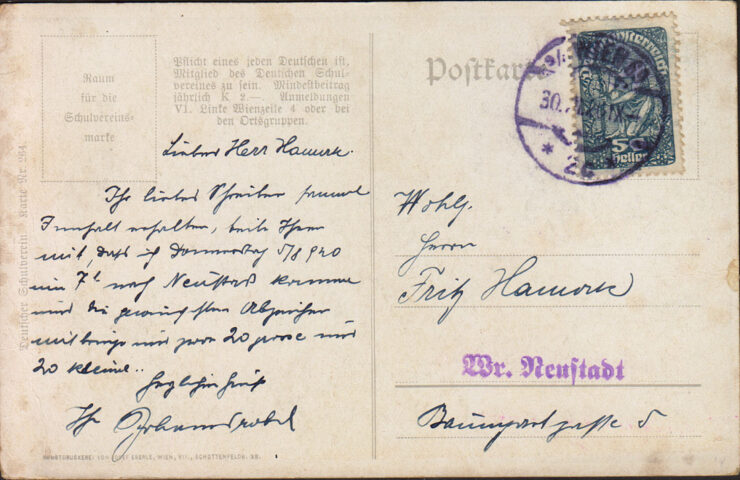 Raum
für die
Schulvereins-
marke
Pflicht eines jeden Deutschen ist,
Mitglied des Deutschen Schul-
vereines zu sein. Mindestbeitrag
jährlich K 2.—. Anmeldungen
VI. Linke Wienzeile 4 oder bei
den Ortsgruppen.
Deutscher Schulverein Karte Nr. 284
Postkarte
WIEN
50
Heller
Lieber Herr Hamerk.
Ihr liebes Schreiben samt
Innhalt erhalten, teile Ihnen
mit, dass ich Donnerstag 5/8 920
um 7h nach Neustadt komme
und die gewünschten Abzeichen
mitbringe und zwar 20 grosse und
20 kleine..
Herzlichen Gruß
Ihr
Wohlg.
Herrn
Fritz Hamerk
Wr. Neustadt
Baumgartgasse 5
KUNSTDRUCKEREI VON JOSEF EBERLE, WIEN, VII., SCHOTTENFELDG. 38.